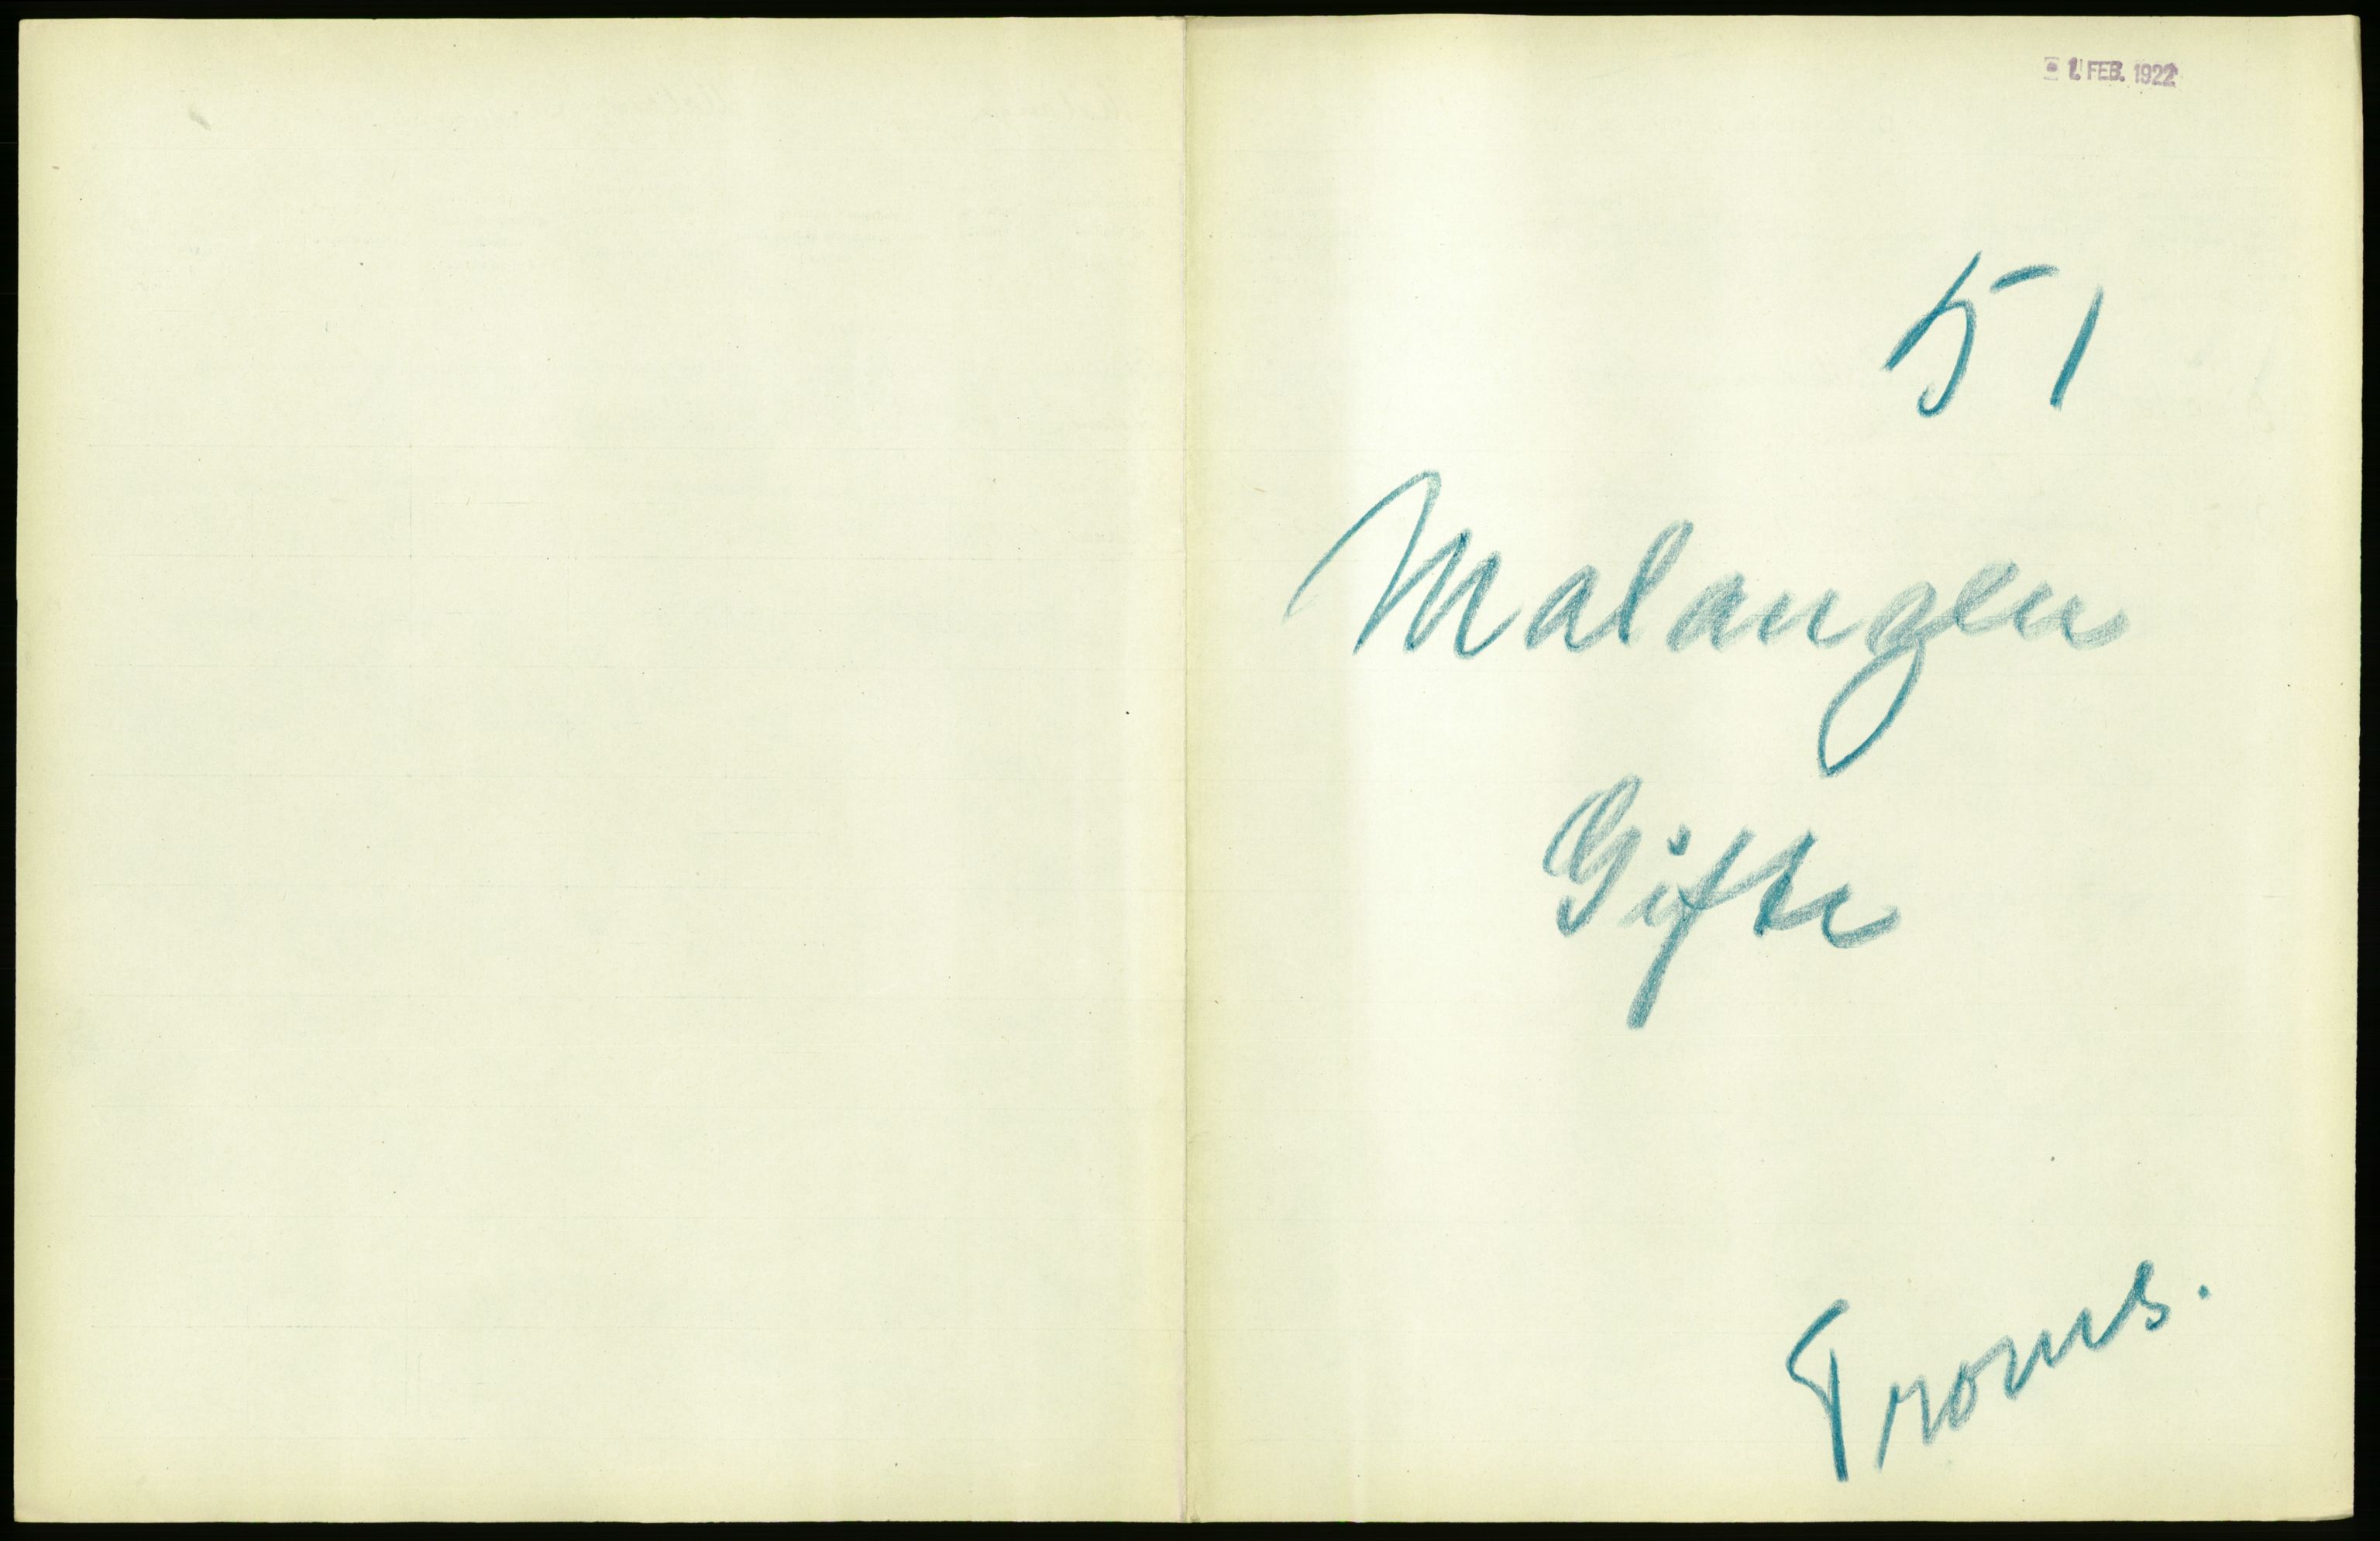 1. FEB. 1922
51
Malangen
Gifte
Troms.